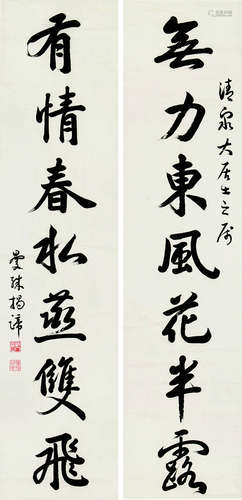 清泉大居士之屬
無力東風花半露
有情春社燕雙飛
曼殊揭諦